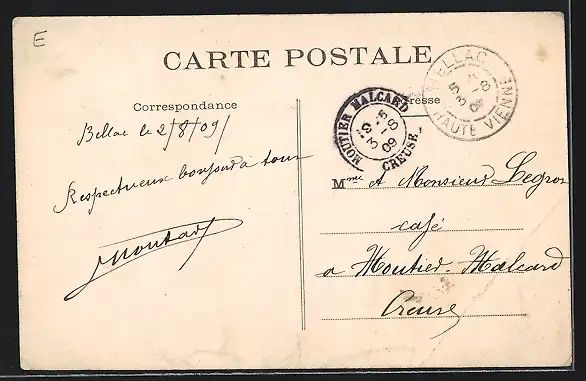 E
CARTE POSTALE
Correspondance
Adresse
BELLAC
HAUTE VIENNE
MOUTIER MALCARD
CREUSE
3-8
09
Bellac le 2/8/09/
Respectueux bonjour à tous
Mme et Monsieur Legros
café
a Moutier-Malcard
Creuse